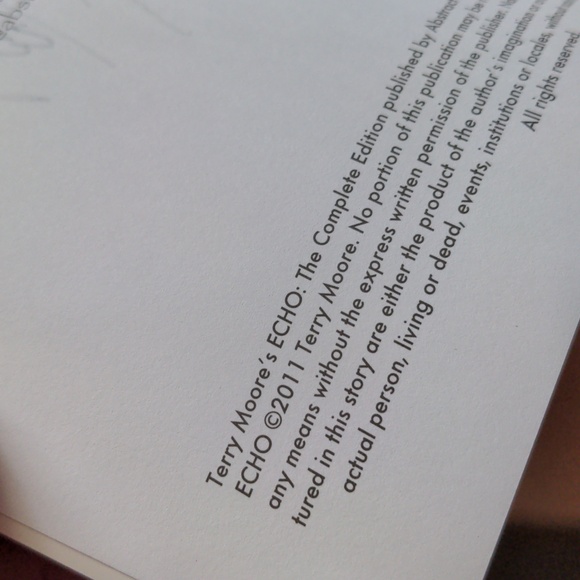 Terry Moore's ECHO: The Complete Edition published by
ECHO ©2011 Terry Moore. No portion of this publication may be
any means without the express written permission of the publisher.
tured in this story are either the product of the author's imagination
actual person, living or dead, events, institutions or locales,
All rights reserved